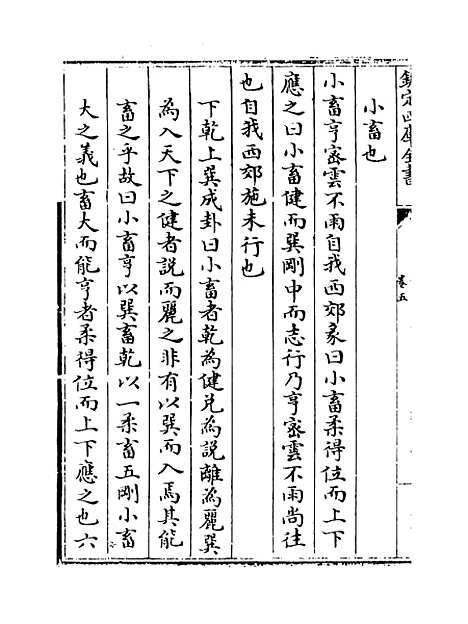 欽定四庫全書
卷五
小畜也
小畜亨密雲不雨自我西郊彖曰小畜柔得位而上下
應之曰小畜健而巽剛中而志行乃亨密雲不雨尚往
也自我西郊施未行也
下乾上巽成卦曰小畜者乾為健兌為說離為麗巽
為入天下之健者說而麗之非有以巽而入焉其能
畜之乎故曰小畜亨以巽畜乾以一柔畜五剛小畜
大之義也畜大而能亨者柔得位而上下應之也六